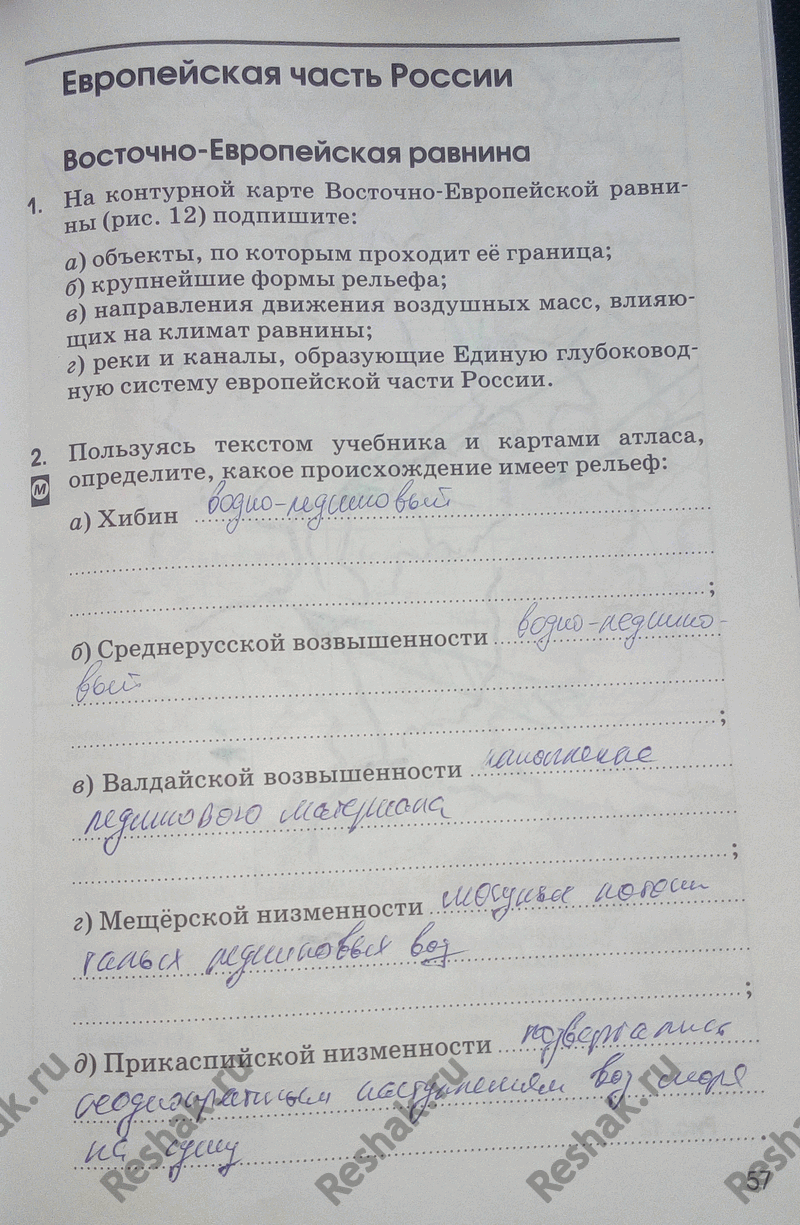 Европейская часть России
Восточно-Европейская равнина
1. На контурной карте Восточно-Европейской равни-
ны (рис. 12) подпишите:
а) объекты, по которым проходит её граница;
б) крупнейшие формы рельефа;
в) направления движения воздушных масс, влияю-
щих на климат равнины;
г) реки и каналы, образующие Единую глубоковод-
ную систему европейской части России.
2. Пользуясь текстом учебника и картами атласа,
М определите, какое происхождение имеет рельеф:
а) Хибин водно-ледниковый
;
б) Среднерусской возвышенности водно-леднико-
вый
;
в) Валдайской возвышенности накопление
ледникового материала
;
г) Мещёрской низменности могучие потоки
талых ледниковых вод
;
д) Прикаспийской низменности подвергались
неоднократным наступлениям вод моря
на сушу.
57
Reshak.ru
Reshak.ru
Reshak.ru
Reshak.ru